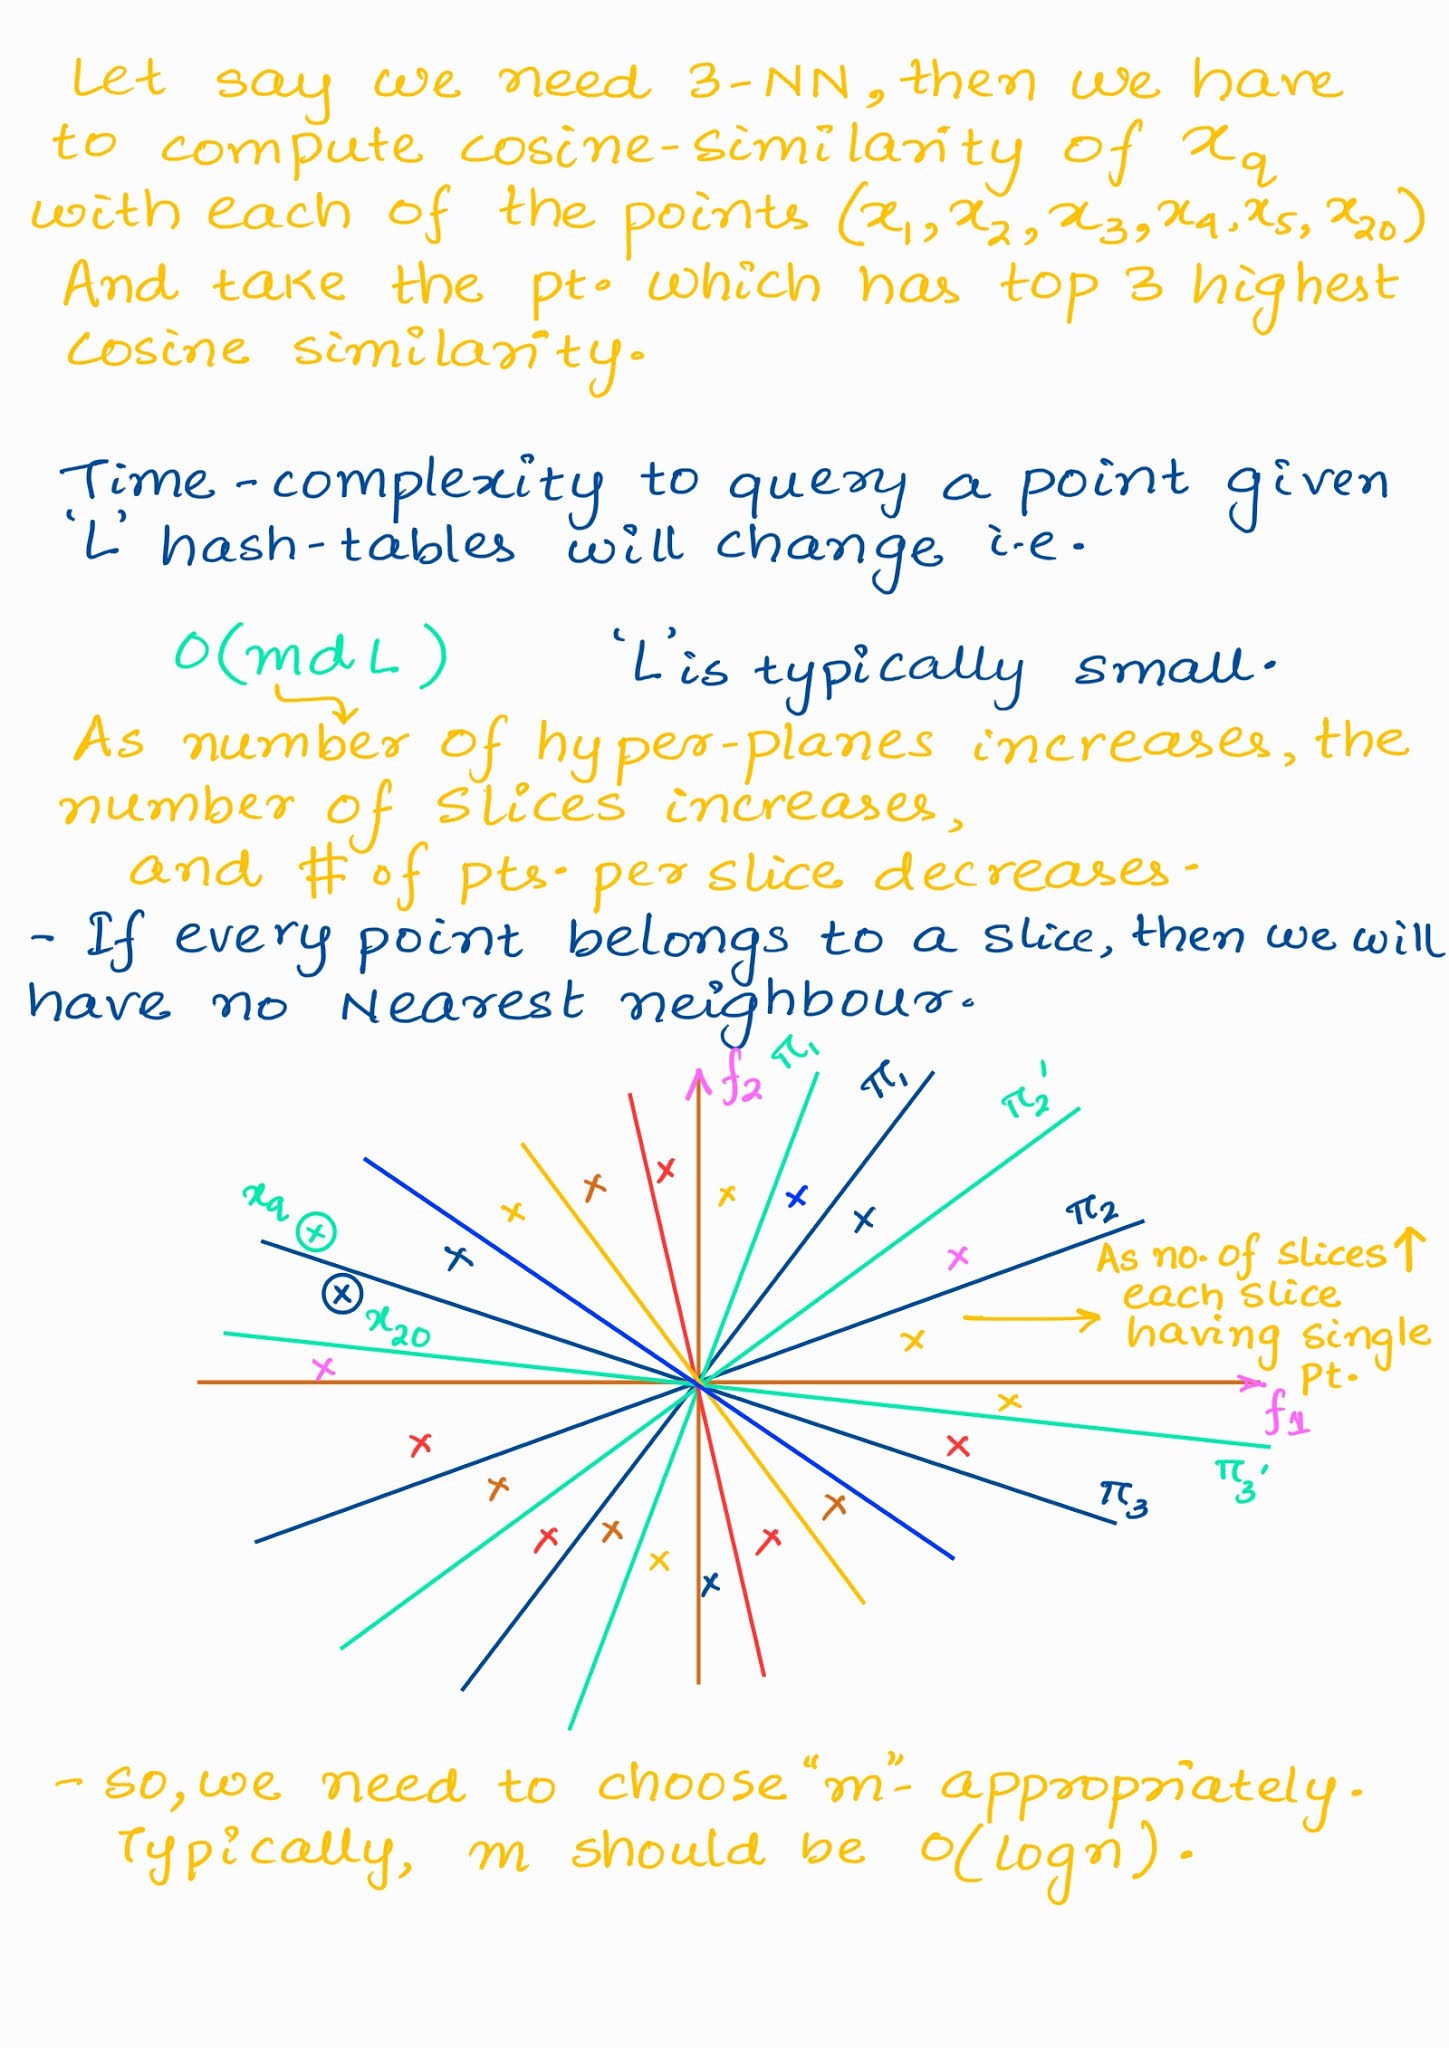 Let say we need 3-NN, then we have
to compute cosine-similarity of xq
with each of the points (x1, x2, x3, x4, x5, x20)
And take the pt. which has top 3 highest
cosine similarity.
Time-complexity to query a point given
'L' hash-tables will change i.e.
O(mdL) 'L' is typically small.
As number of hyper-planes increases, the
number of slices increases,
and # of pts. per slice decreases.
- If every point belongs to a slice, then we will
have no Nearest neighbour.
f2
π1
π1
π2'
π2
xq
x20
As no. of slices ↑
each slice
having single
pt.
f1
π3'
π3
- So, we need to choose "m"- appropriately.
Typically, m should be O(logn).